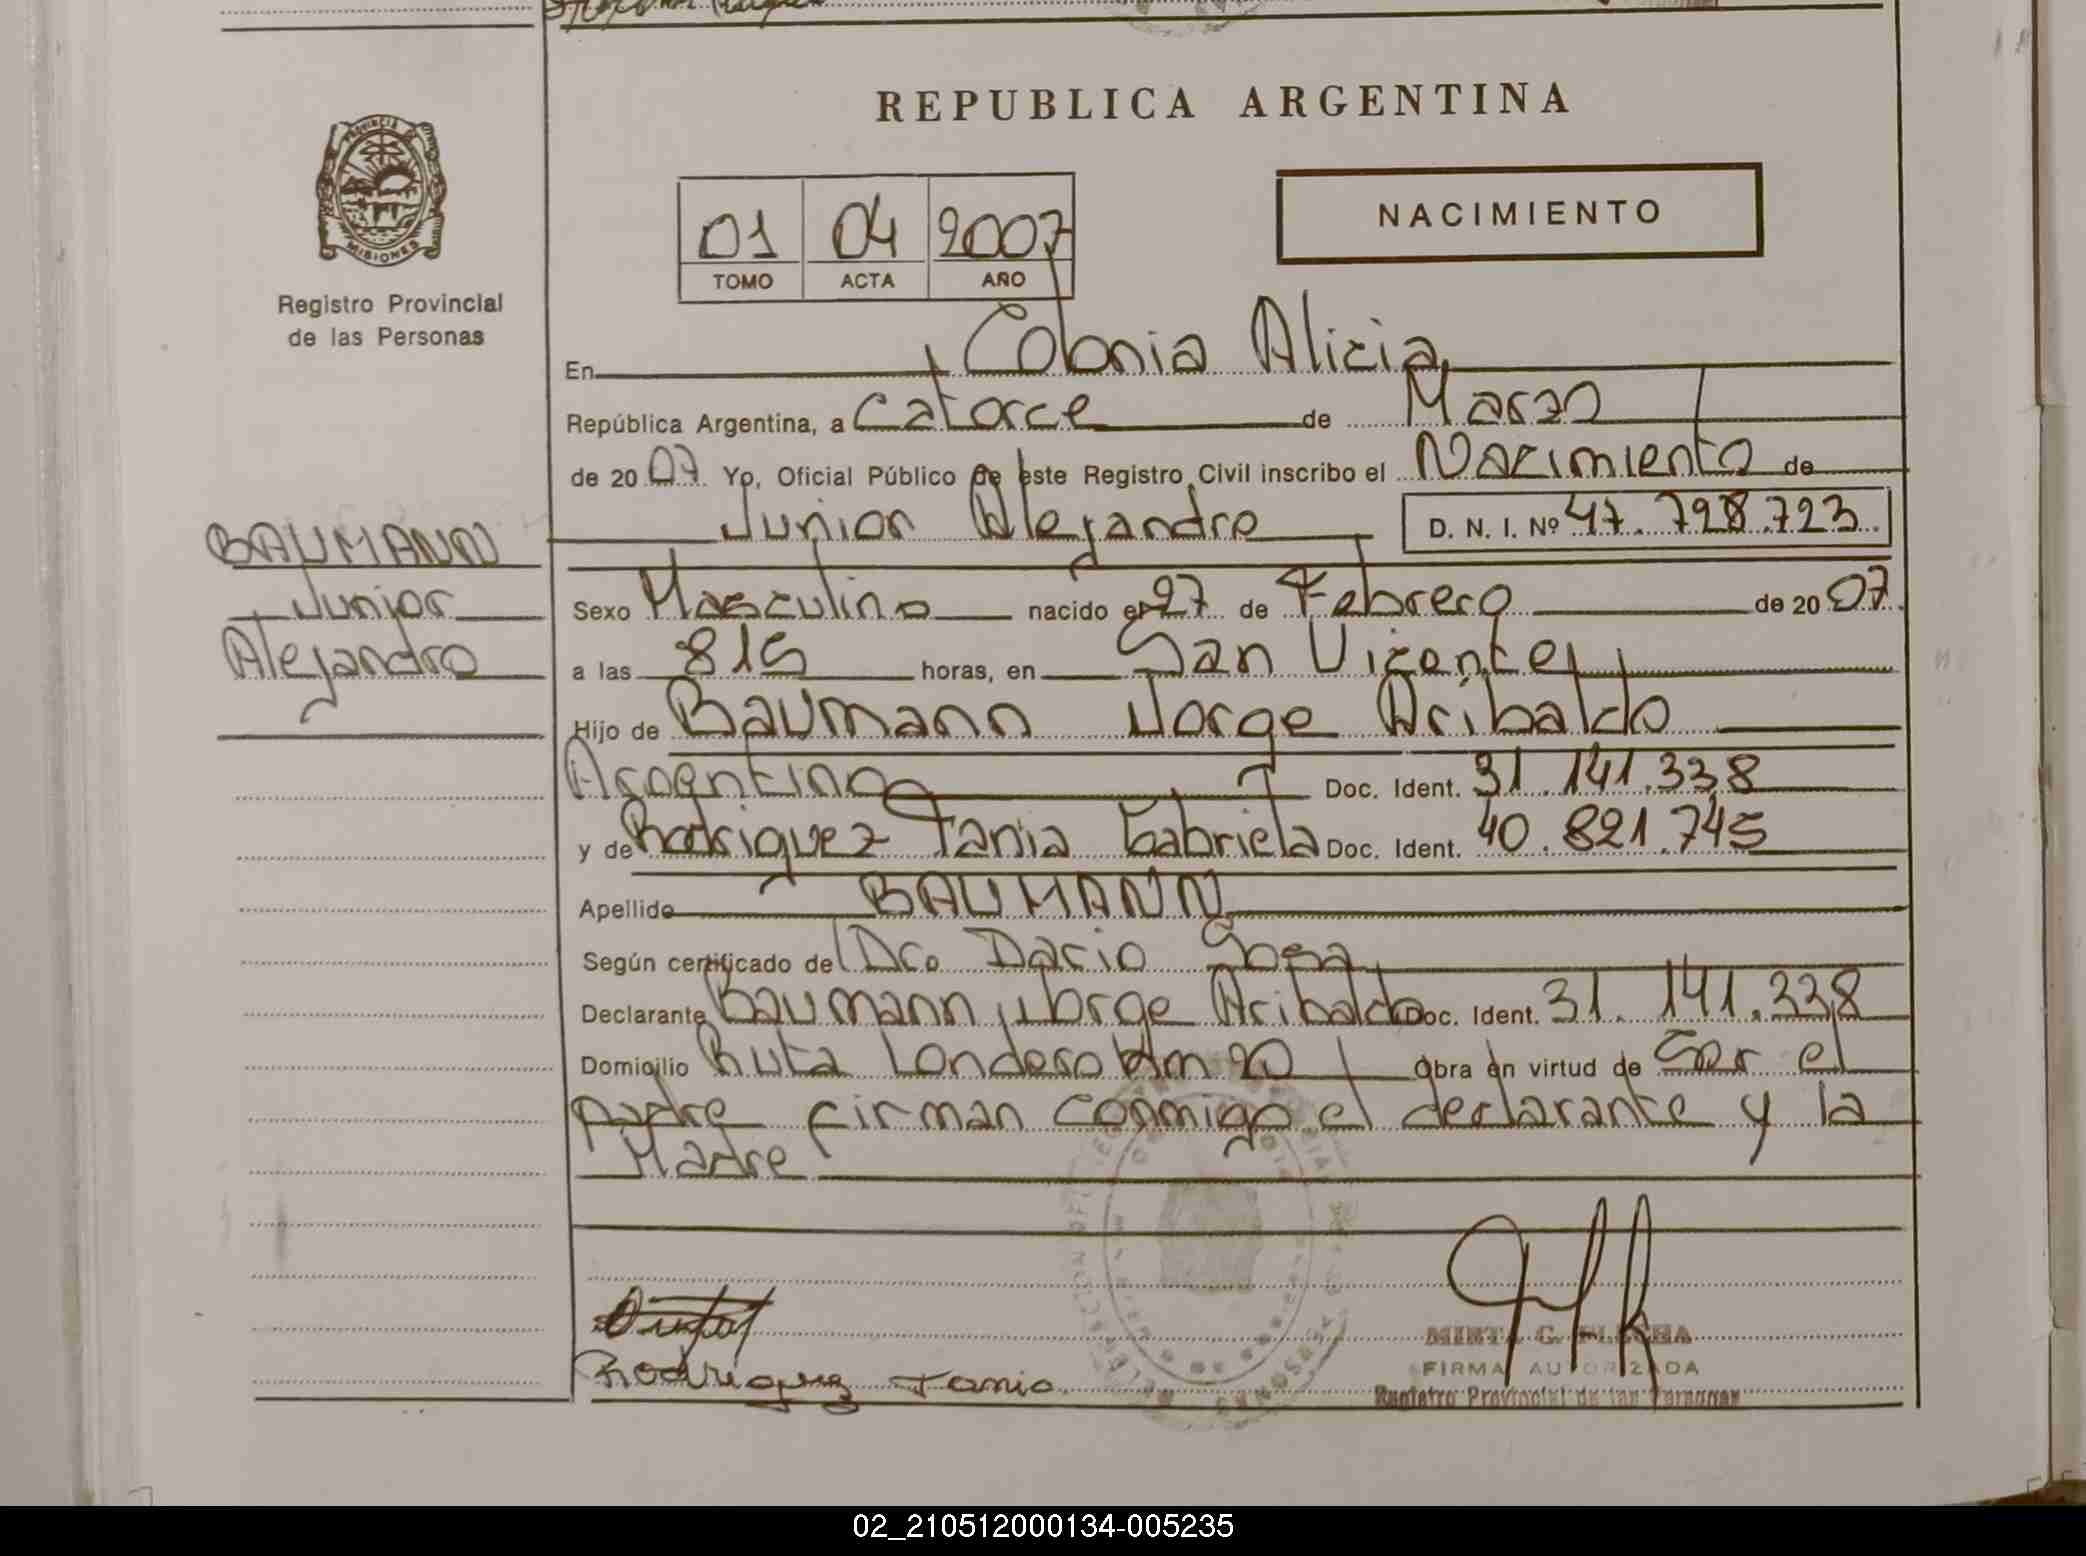 REPUBLICA ARGENTINA
PROVINCIA DE
MISIONES
Registro Provincial
de las Personas
01 04 2007
TOMO ACTA AÑO
NACIMIENTO
En Colonia Alicia
República Argentina, a Catorce de Marzo
de 20 07 Yo, Oficial Público de este Registro Civil inscribo el Nacimiento de
Junior Alejandro D. N. I. Nº 47.798.723
BAUMANN
Junior
Alejandro
Sexo Masculino nacido el 27 de Febrero de 20 07
a las 815 horas, en San Vicente
Hijo de Baumann Jorge Aribaldo
Argentino Doc. Ident. 31.141.338
y de Rodriguez Tania Gabriela Doc. Ident. 40.821.745
Apellido BAUMANN
Según certificado del Dro Dario Sosa
Declarante Baumann Jorge Aribaldo Doc. Ident. 31.141.338
Domicilio Ruta Londero Km 20 Obra en virtud de Ser el
padre firman conmigo el declarante y la
Madre
Rodriguez Tania
MIRTA G. FLECHA
FIRMA AUTORIZADA
Registro Provincial de las Personas
02_210512000134-005235